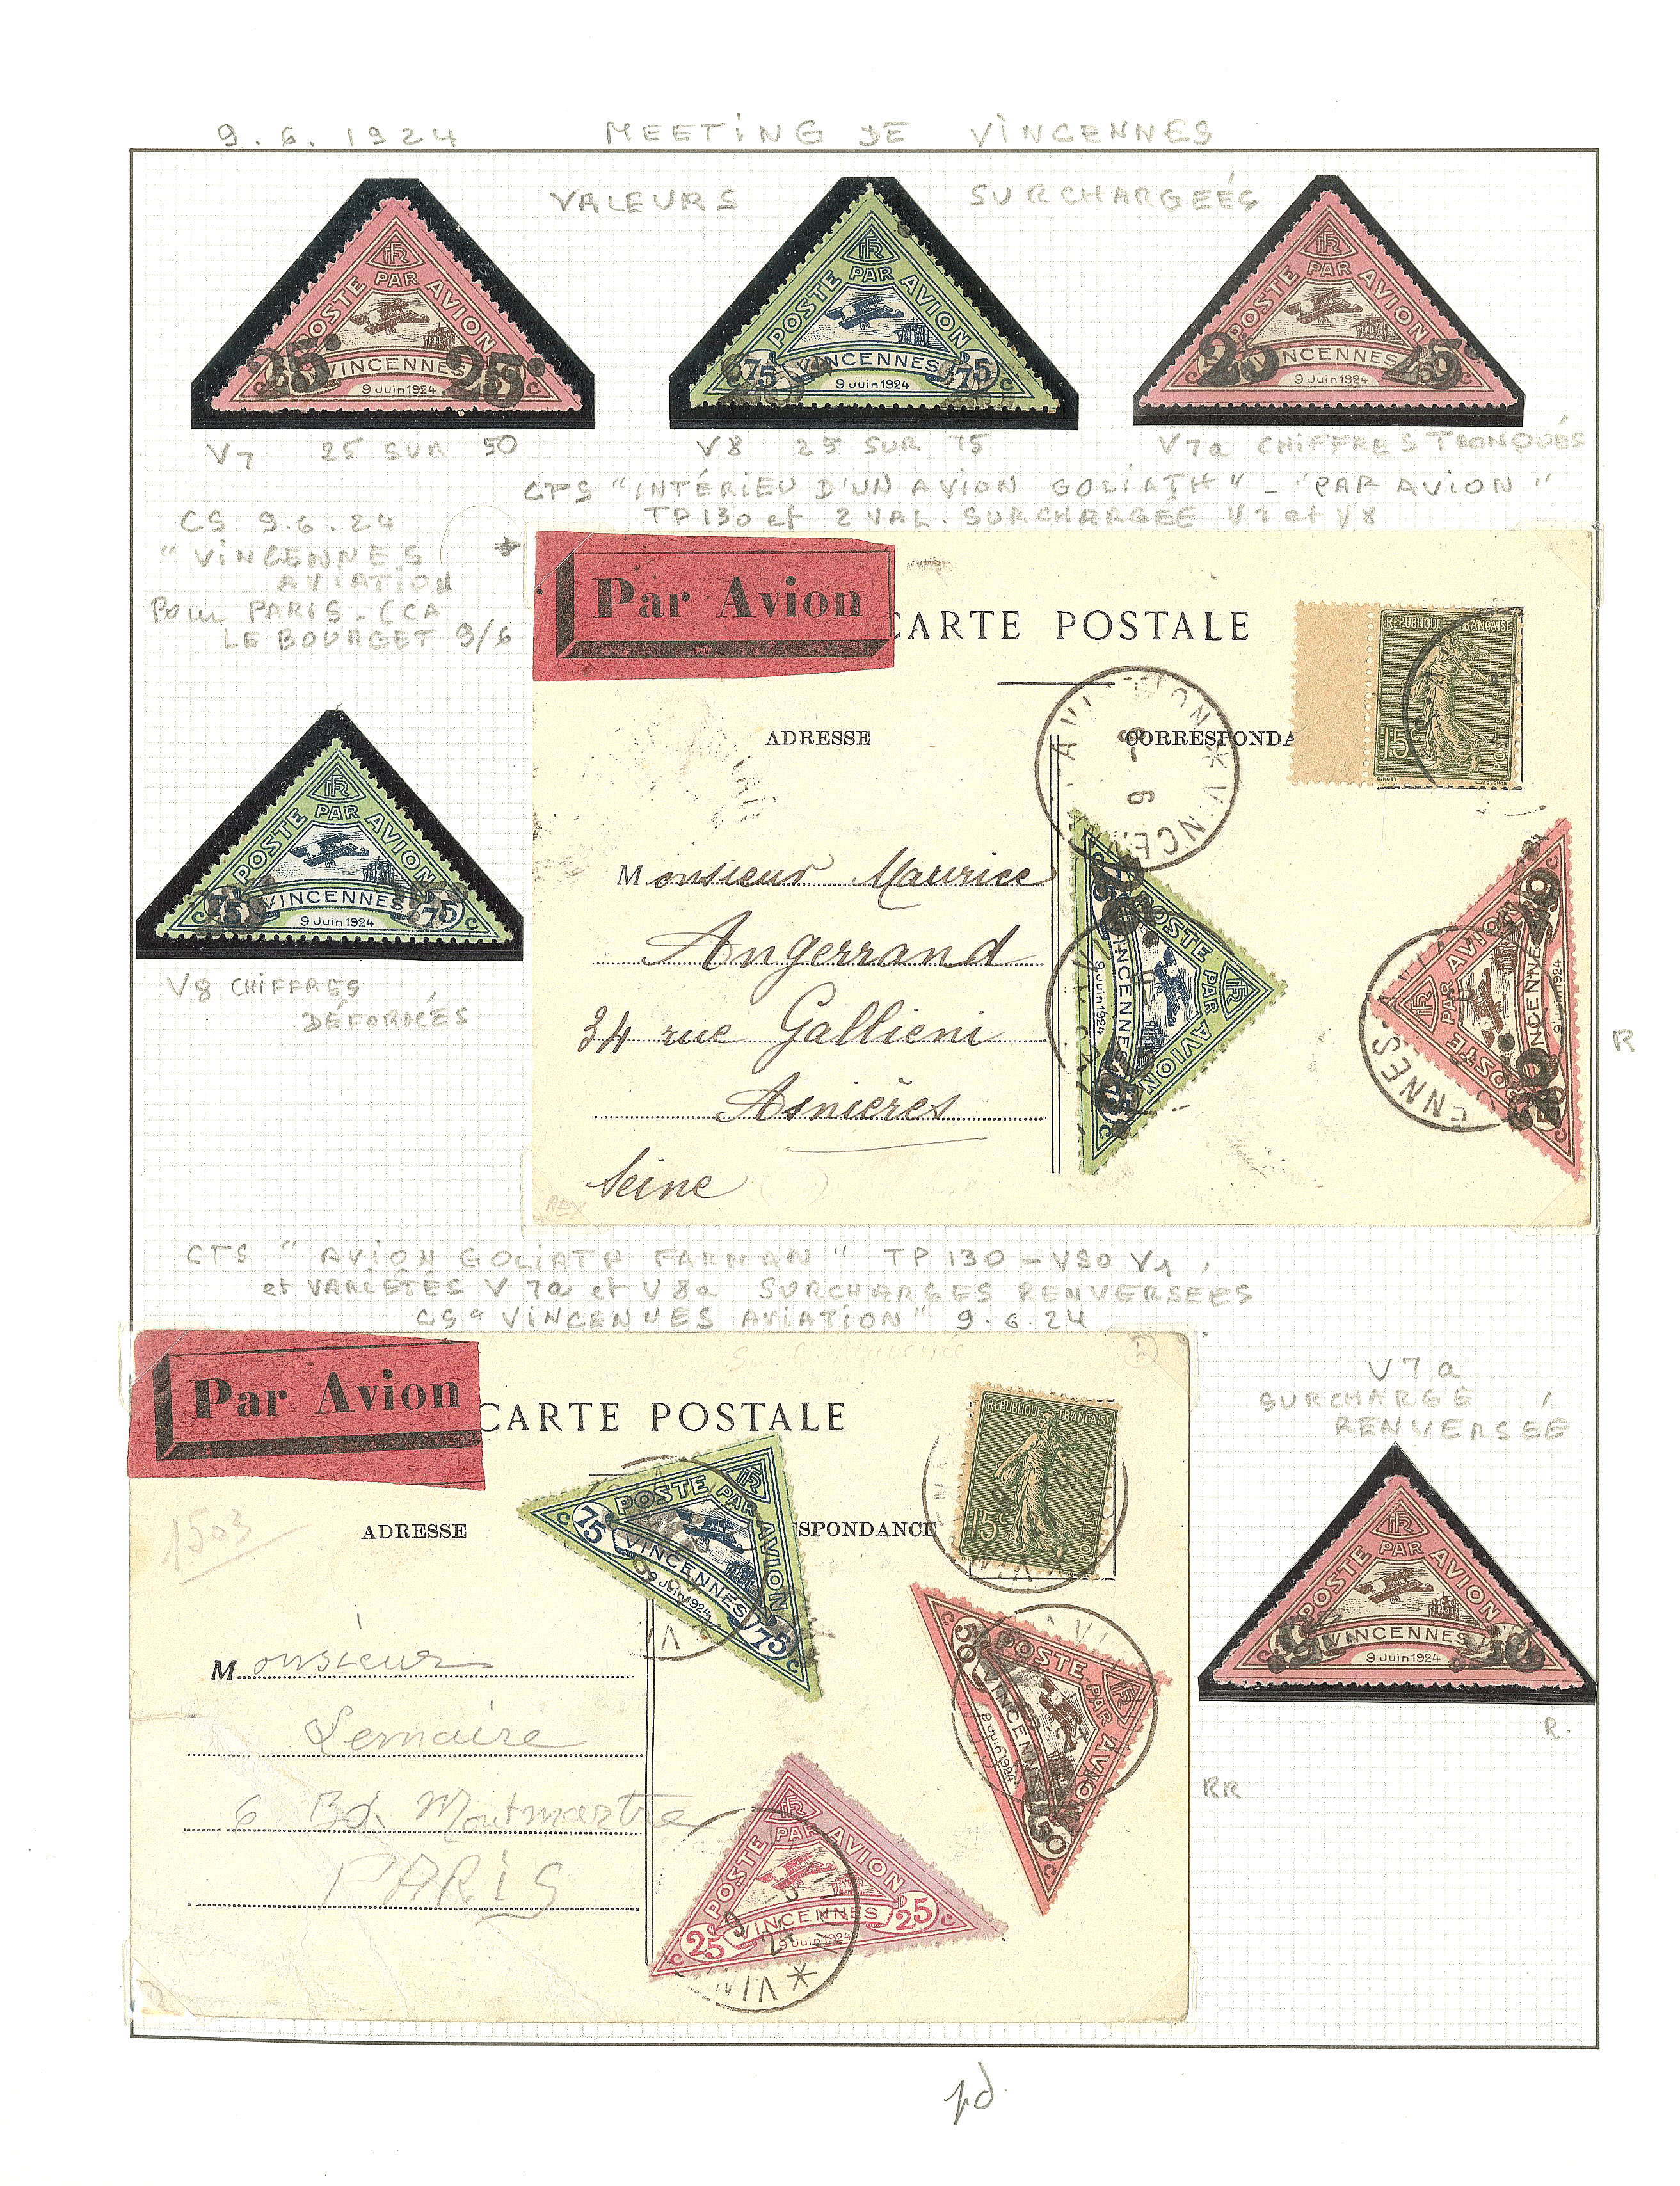 9.6.1924 MEETING DE VINCENNES
VALEURS SURCHARGEÉS
RF
POSTE PAR AVION
25c 25c
VINCENNES
9 Juin 1924
RF
POSTE PAR AVION
75 75
VINCENNES
9 Juin 1924
RF
POSTE PAR AVION
25c
VINCENNES
9 Juin 1924
V7 25 SUR 50
V8 25 SUR 75
V7a CHIFFRES TRONQUÉS
CPS "INTÉRIEU D'UN AVION GOLIATH" - "PAR AVION"
TP 130 et 2 VAL. SURCHARGÉE V7 et V8
CS 9.6.24
"VINCENNES
AVIATION
Pour PARIS - CCA
LE BOURGET 9/6
Par Avion
CARTE POSTALE
REPUBLIQUE FRANÇAISE
15c
POSTES
ADRESSE
CORRESPONDA
AVIATION * VINCE
9-6
Monsieur Maurice
Angerrand
34 rue Gallieni
Asnières
Seine
AEX
RF
POSTE PAR AVION
75c 75c
VINCENNES
9 Juin 1924
RF
POSTE PAR AVION
VINCENNES
9 Juin 1924
ENNES
R
RF
POSTE PAR AVION
c 75 75 c
VINCENNES
9 Juin 1924
V8 CHIFFRES
DÉFORMÉS
CTS "AVION GOLIATH FARMAN" TP 130 - VSO V1,
et VARIÉTÉS V7a et V8a SURCHARGES RENVERSÉES
CS "VINCENNES AVIATION" 9.6.24
Par Avion
CARTE POSTALE
REPUBLIQUE FRANÇAISE
15c
POSTES
1503
ADRESSE
SPONDANCE
RF
POSTE PAR AVION
c 75 75
VINCENNES
9 Juin 1924
Monsieur
Lemaire
6 Bd. Montmartre
PARIS
RF
POSTE PAR AVION
c 50 50 c
VINCENNES
9 Juin 1924
RF
POSTE PAR AVION
c 25 25 c
VINCENNES
9 Juin 1924
* VIN
RR
V7a
SURCHARGE
RENVERSÉE
RF
POSTE PAR AVION
VINCENNES
9 Juin 1924
R.